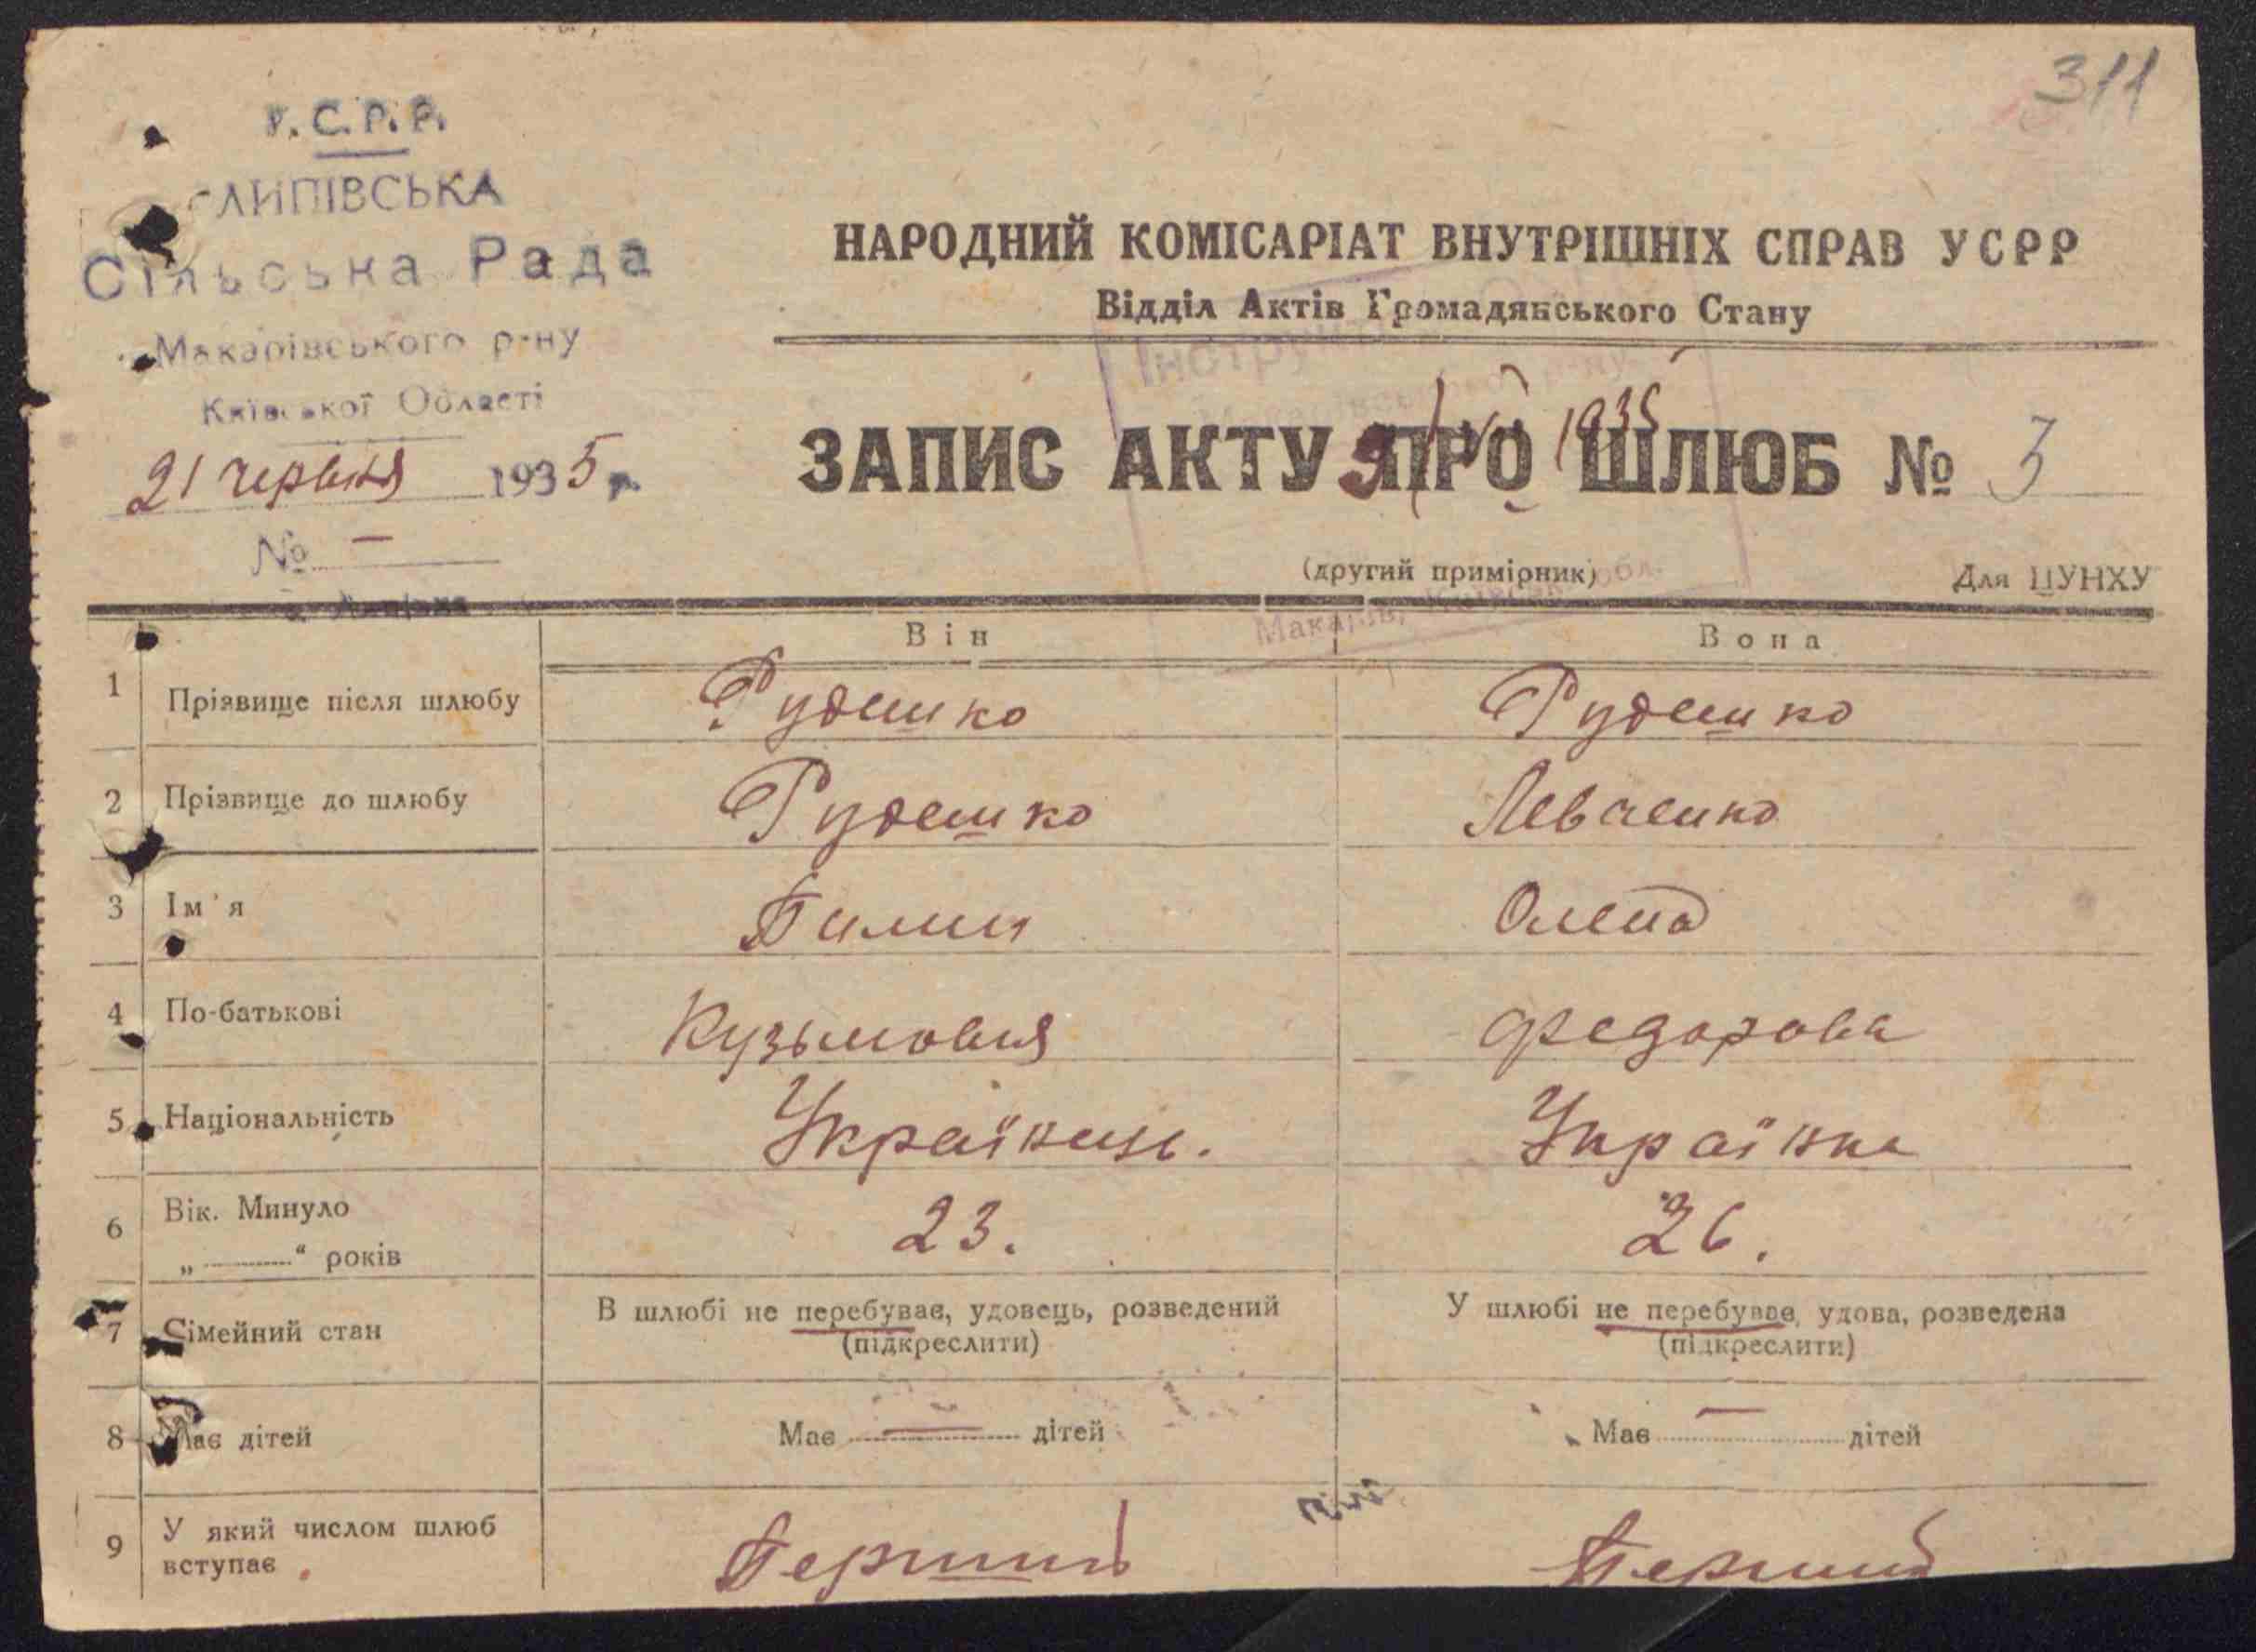 311
У.С.Р.Р.
ЛИПІВСЬКА
Сільська Рада
Макарівського р-ну
Київської Області
21 червня 1935 р.
№ —
НАРОДНИЙ КОМІСАРІАТ ВНУТРІШНІХ СПРАВ УСРР
Відділ Актів Громадянського Стану
1935
ЗАПИС АКТУ ПРО ШЛЮБ № 3
(другий примірник)
Для ЦУНХУ
Він Вона
1 Прізвище після шлюбу Руденко Руденко
2 Прізвище до шлюбу Руденко Левченко
3 Ім'я Пилип Олена
4 По-батькові Кузьмовия Федорова
5 Національність Українець. Українка
6 Вік. Минуло 23. 26.
„ “ років
7 Сімейний стан В шлюбі не перебуває, удовець, розведений У шлюбі не перебуває, удова, розведена
(підкреслити) (підкреслити)
8 Має дітей Має — дітей Має — дітей
9 У який числом шлюб Перший Перший
вступає